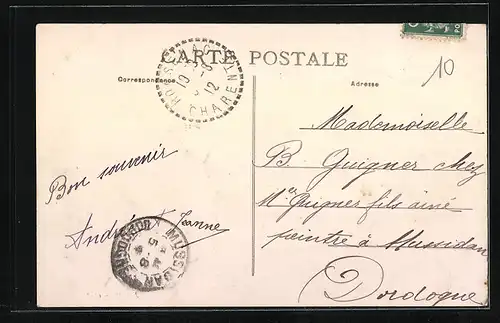 CARTE POSTALE
Correspondance
Adresse
10
CHARENTE
10 - 8
12
Bon souvenir
André & Jeanne
MUSSIDAN
DORDOGNE
Mademoiselle
B. Guigner chez
Mr Guigner fils aîné
peintre à Mussidan
Dordogne